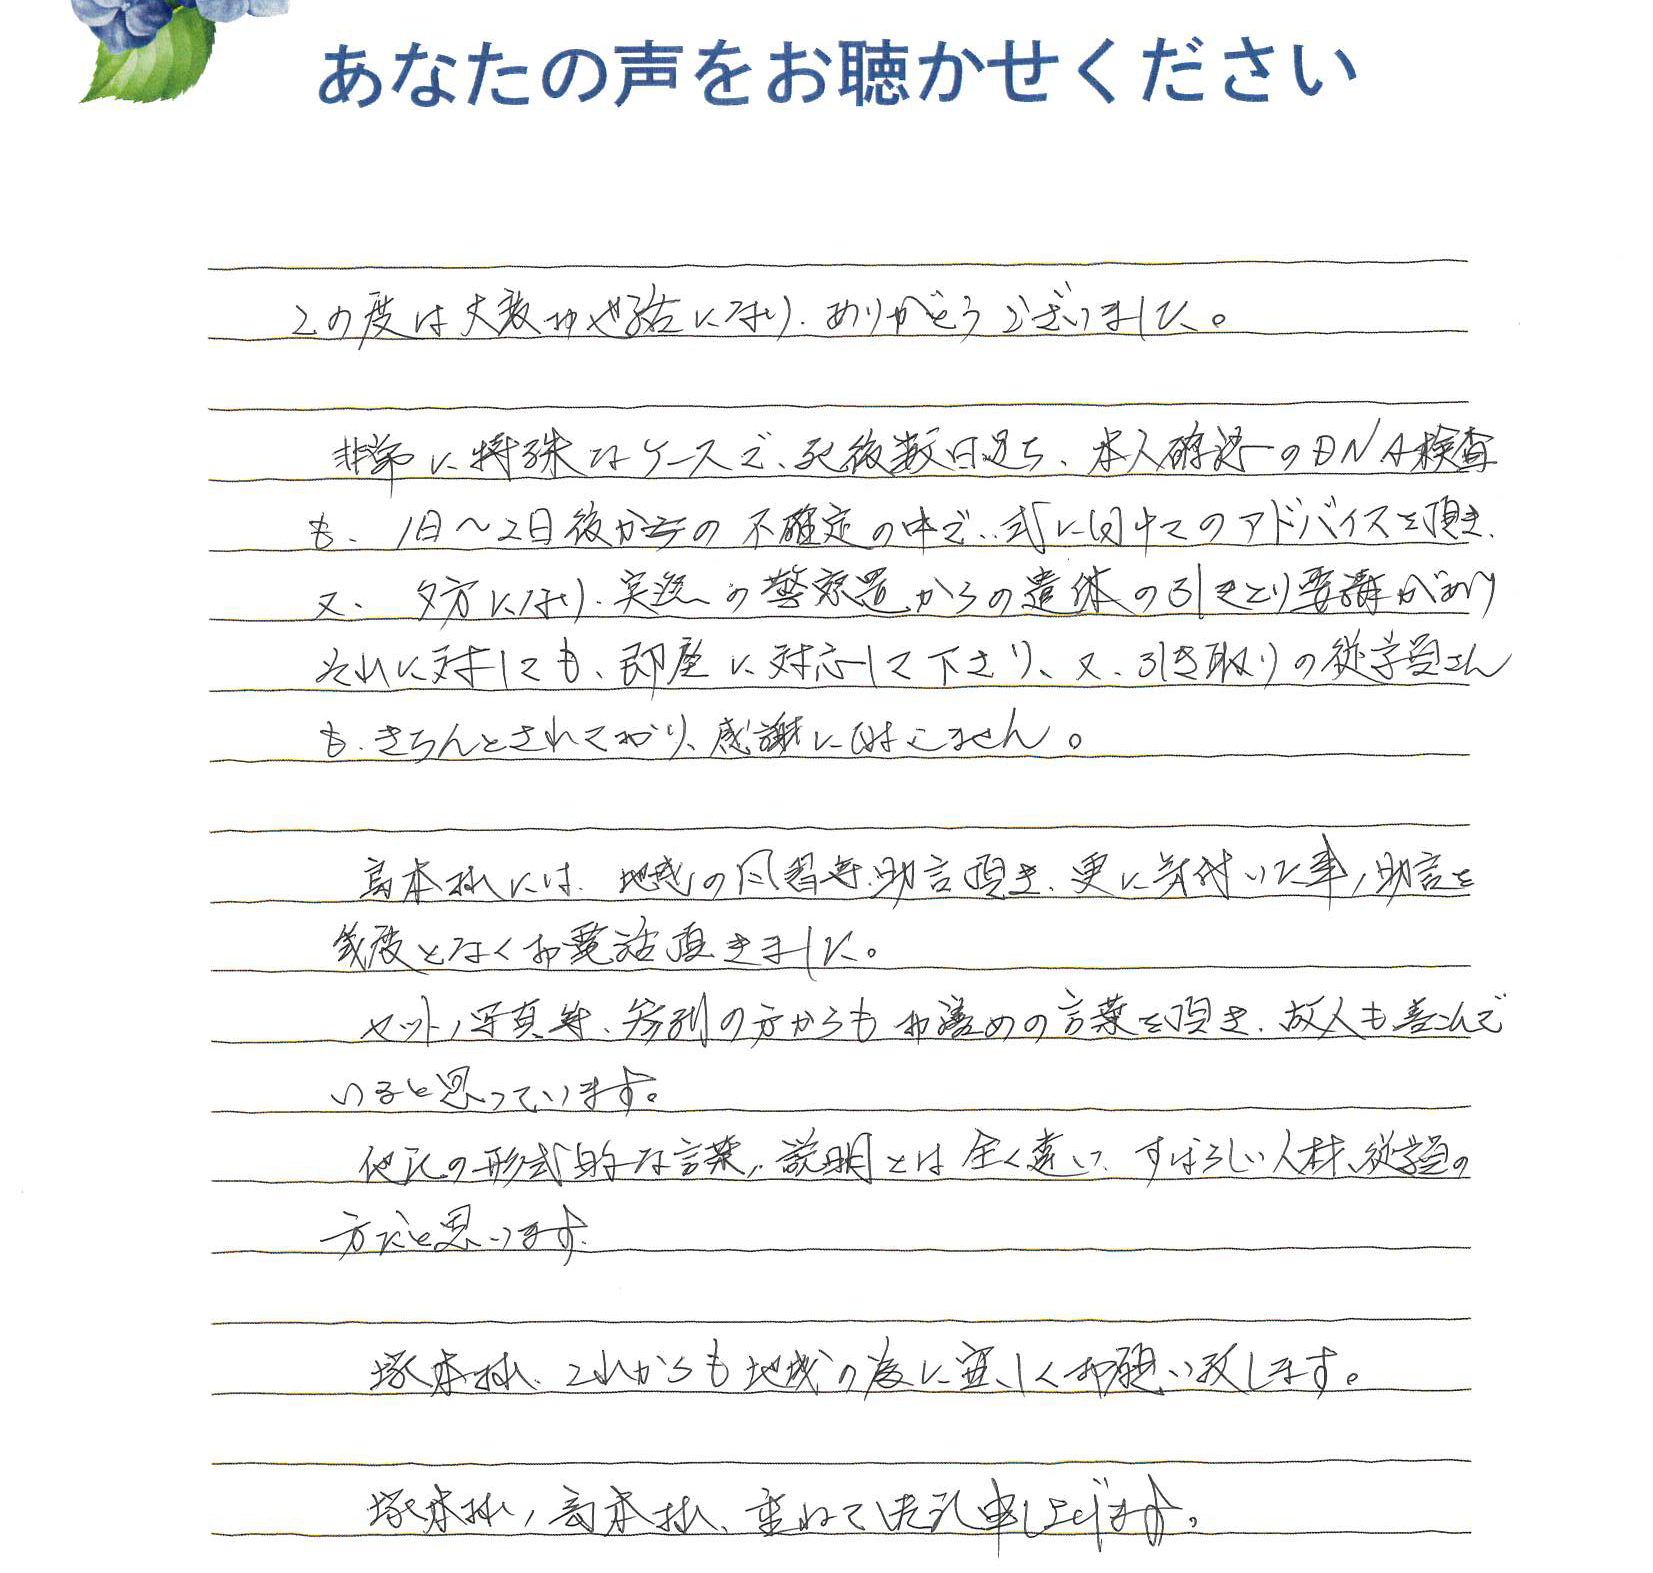 あなたの声をお聴かせください
この度は大変お世話になり、ありがとうございました。
非常に特殊なケースで、死後数日過ち、本人確認のDNA検査
も、1日〜2日後からの不確定の中で、式に向けてのアドバイスを頂き、
又、夕方になり、実際の警察署からの遺体の引きとり要請があり
それに対しても、即座に対応して下さり、又、引き取りの従業員さん
も、きちんとされており、感謝にたえません。
高本様には、地域の風習等、助言頂き、更に気付いた事、助言を
幾度となくお電話頂きました。
セット、写真等、参列の方からもお褒めの言葉を頂き、故人も喜こんで
いると思っています。
他社の形式的な言葉、説明とは全く違い、すばらしい人材、従業員の
方だと思います。
塚本様、これからも地域の為に宜しくお願い致します。
塚本様、高本様、重ねて御礼申し上げます。